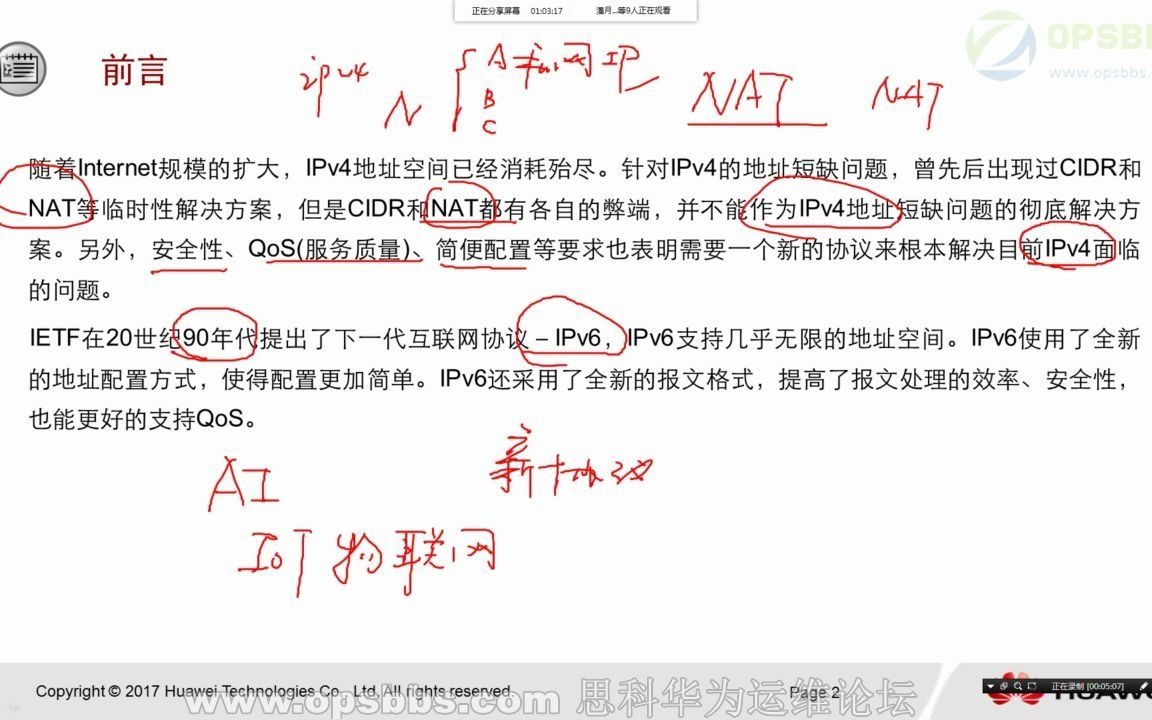 正在分享屏幕 01:03:17 潘月...等9人正在观看
OPSBB
www.opsbbs.
前言
ipv4
N
A 私网IP
B
C
NAT
NAT
随着Internet规模的扩大，IPv4地址空间已经消耗殆尽。针对IPv4的地址短缺问题，曾先后出现过CIDR和
NAT等临时性解决方案，但是CIDR和NAT都有各自的弊端，并不能作为IPv4地址短缺问题的彻底解决方
案。另外，安全性、QoS(服务质量)、简便配置等要求也表明需要一个新的协议来根本解决目前IPv4面临
的问题。
IETF在20世纪90年代提出了下一代互联网协议－IPv6，IPv6支持几乎无限的地址空间。IPv6使用了全新
的地址配置方式，使得配置更加简单。IPv6还采用了全新的报文格式，提高了报文处理的效率、安全性，
也能更好的支持QoS。
AI
新协议
IoT 物联网
Copyright © 2017 Huawei Technologies Co., Ltd. All rights reserved.
Page 2
HUAWEI
正在录制 [00:05:07]
www.opsbbs.com 思科华为运维论坛